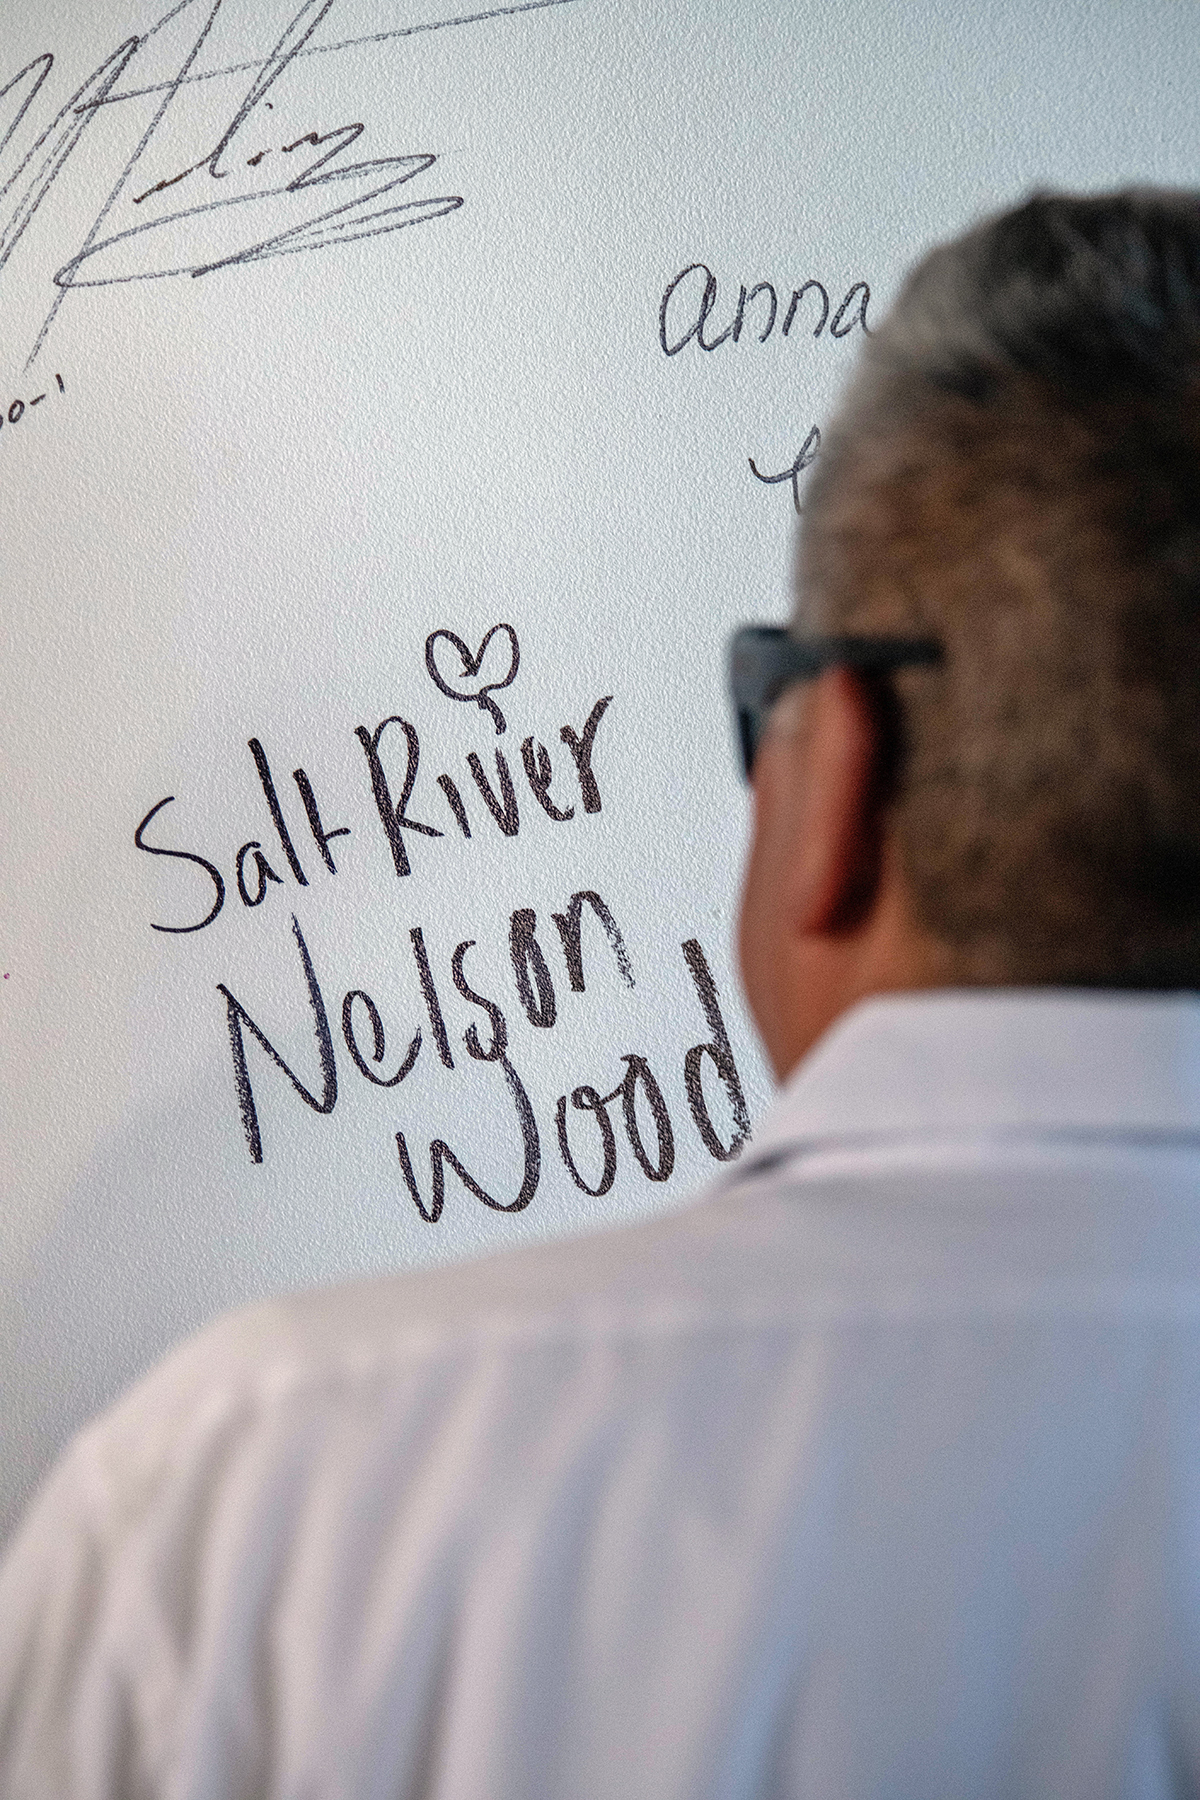 anna
Salt River
Nelson
Wood